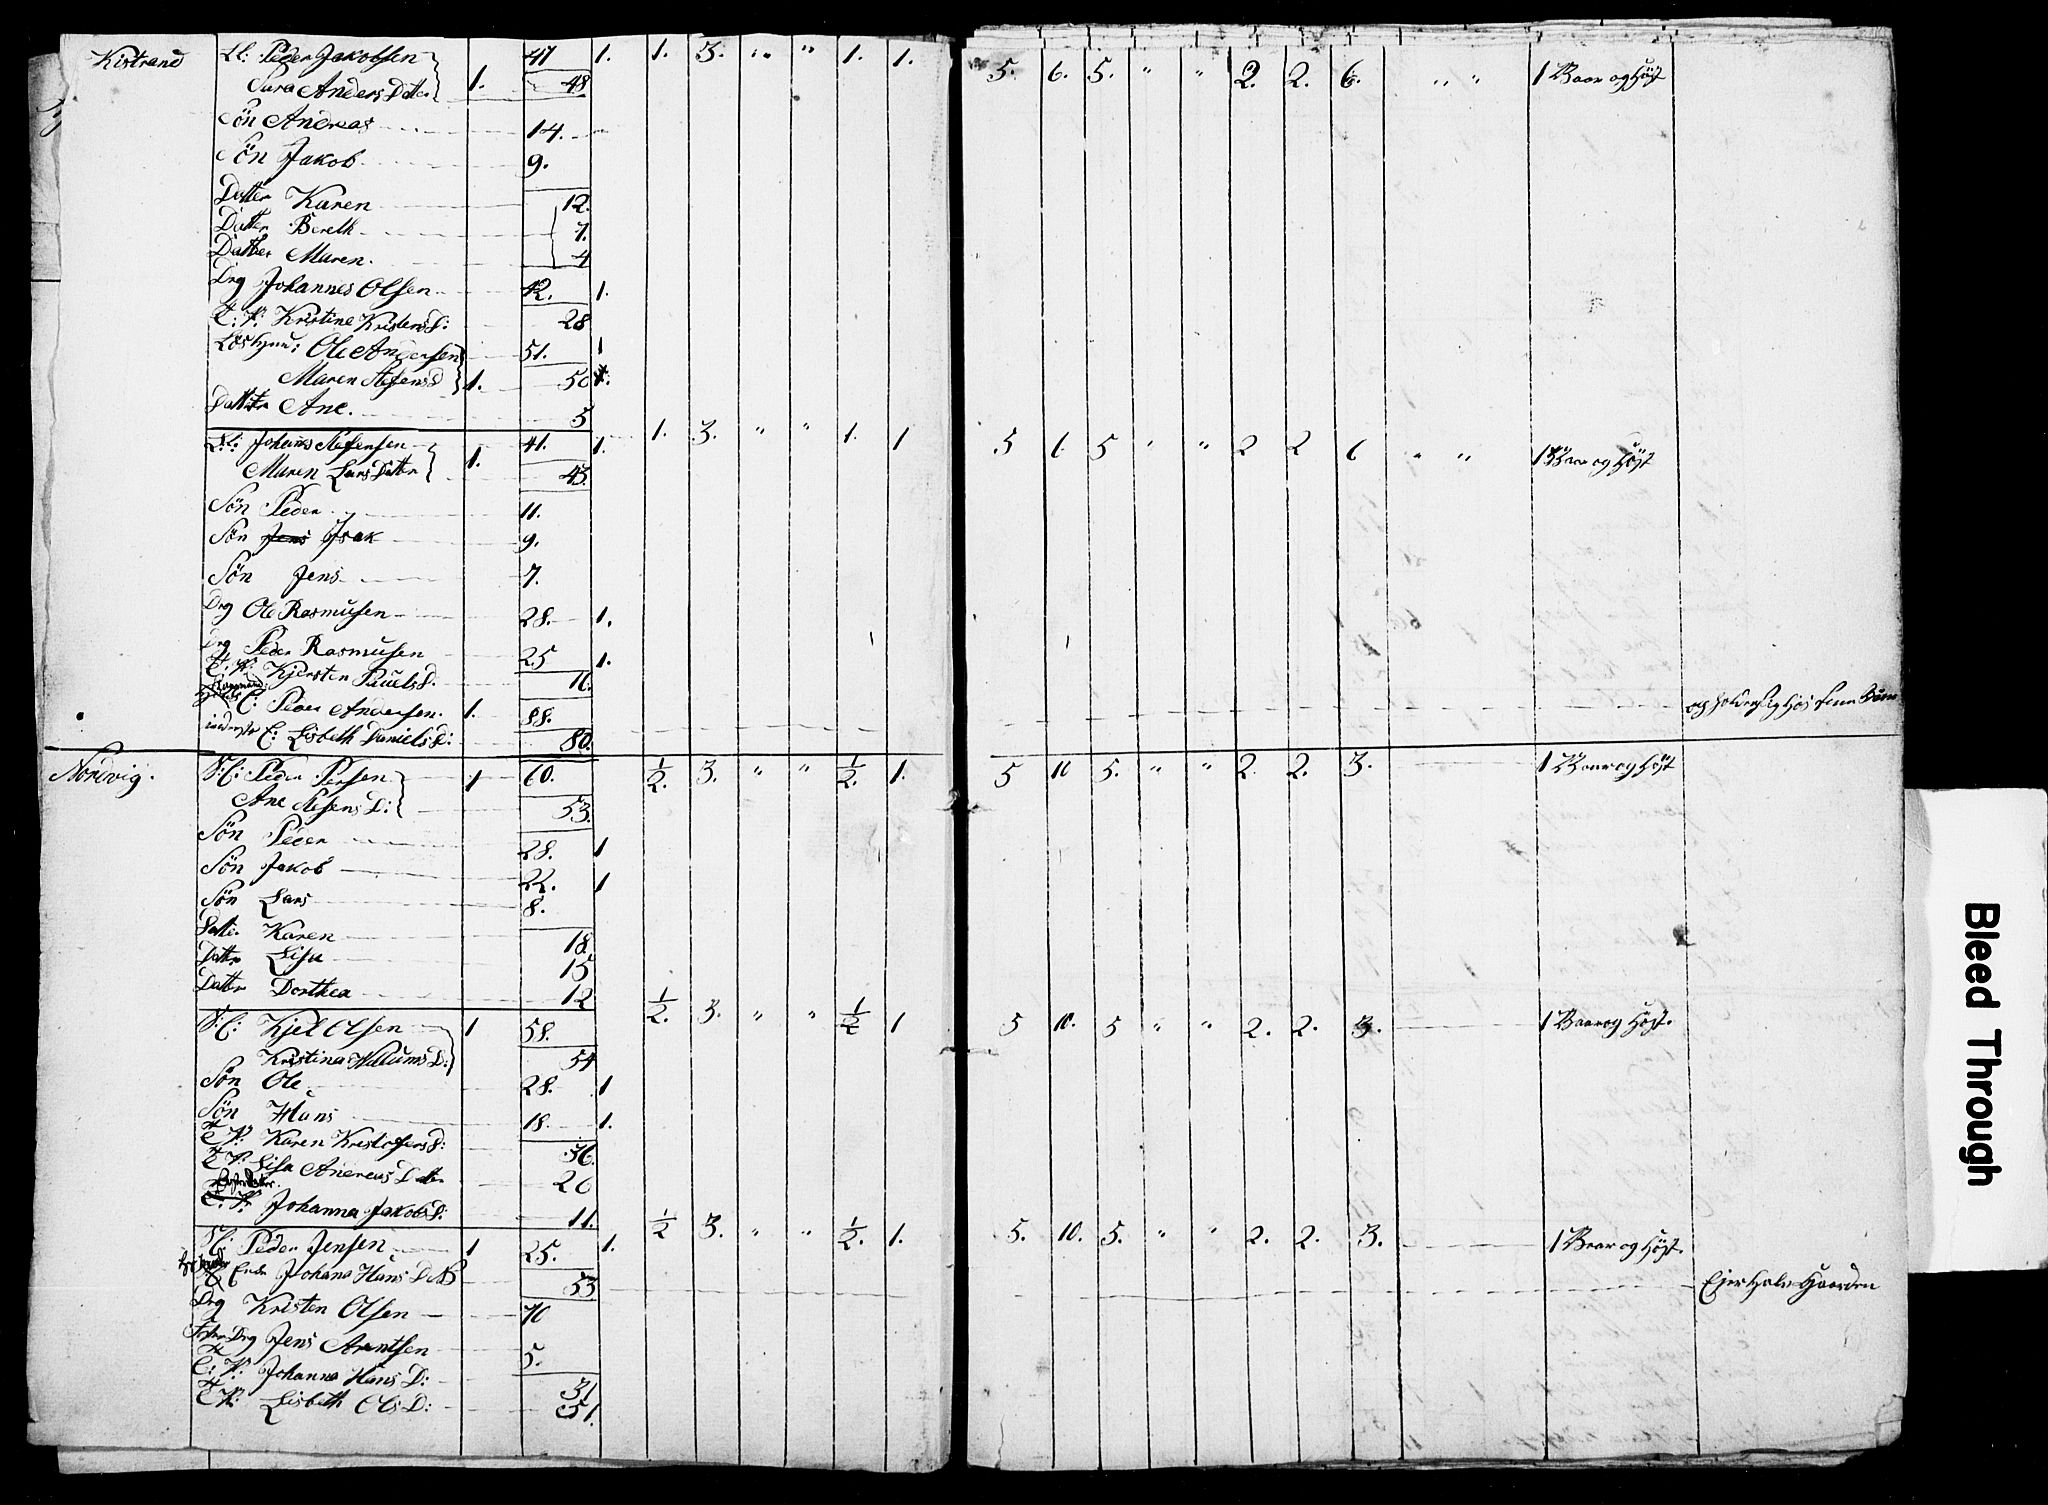 Kistrand Ll: Peder Jakobsen 47 1. 1. 3. " " 1. 1. 5. 6. 5. " " 2. 2. 6. " " 1 Vaar og Høst
Sara Anders Datter 1. 48
Sön Andreas 14.
Sön Jakob 9.
Datter Karen 12.
Datter Bereth 7.
Datter Maren. 4
Drg Johannes Olsen 42. 1.
T: P: Kristine KristensD: 28
Ole Andersen 51. 1
Maren D 1. 50
Datter Ane. 5
Ll: Johans 41. 1. 1. 3. " " 1. 1 5 6. 5 " " 2 2 6 " " 1 Vaar og Høst
Maren Lars Datter 1. 43.
Sön Peder 11.
Sön Isak 9.
Sön Jens 7.
Drg Ole Rasmusen 28. 1.
Drg Peder Rasmusen 25 1.
T. P: Kjersten PauelsD. 16.
E: Peder Andersen. 1. 88.
E: Lisbeth DanielsD: 80.
Nordvig. Peder Persen 1 60. 1/2. 3. " " 1/2. 1. 5 10 5. " " 2. 2. 3. 1 Vaar og Høst
Ane D: 53.
Sön Peder 28. 1
Sön Jakob 22. 1
Sön Lars 8.
Datter Karen 18.
Datter Lisa 15
Datter Dorthea 12
Kjel Olsen 1 58. 1/2. 3. " " 1/2 1 5 10. 5 " " 2. 2. 3. 1 Vaar og Høst.
Kristina D: 54
Sön Ole 28. 1
Sön Hans 18. 1.
T P: Karen KristofersD: 36.
T P: Lisa Andreas Datter 26
Johanna JakobsD: 11.
Peder Jensen 1 25. 1. 1/2 3. " " 1/2. 1. 5. 10. 5. " " 2. 2. 3. 1 Vaar og Høst.
Johana Hans 53 Ejer Halv Gaarden
Drg Kristen Olsen 70
Drg Jens Arentsen 5.
T: P: Johanna Hans D: 31
T P: Lisbeth Ols D: 51.
Bleed Through